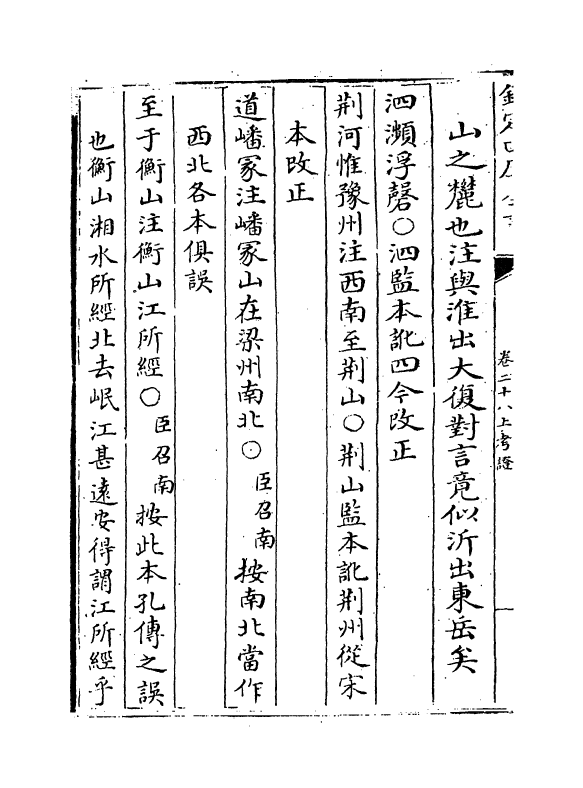 山之麓也注與淮出大復對言竟似沂出東岳矣
泗瀕浮磬○泗監本訛四今改正
荆河惟豫州注西南至荆山○荆山監本訛荆州從宋
本改正
道嶓冢注嶓冢山在梁州南北○臣召南按南北當作
西北各本俱誤
至于衡山注衡山江所經○臣召南按此本孔傳之誤
也衡山湘水所經北去岷江甚遠安得謂江所經乎
卷二十八上考證